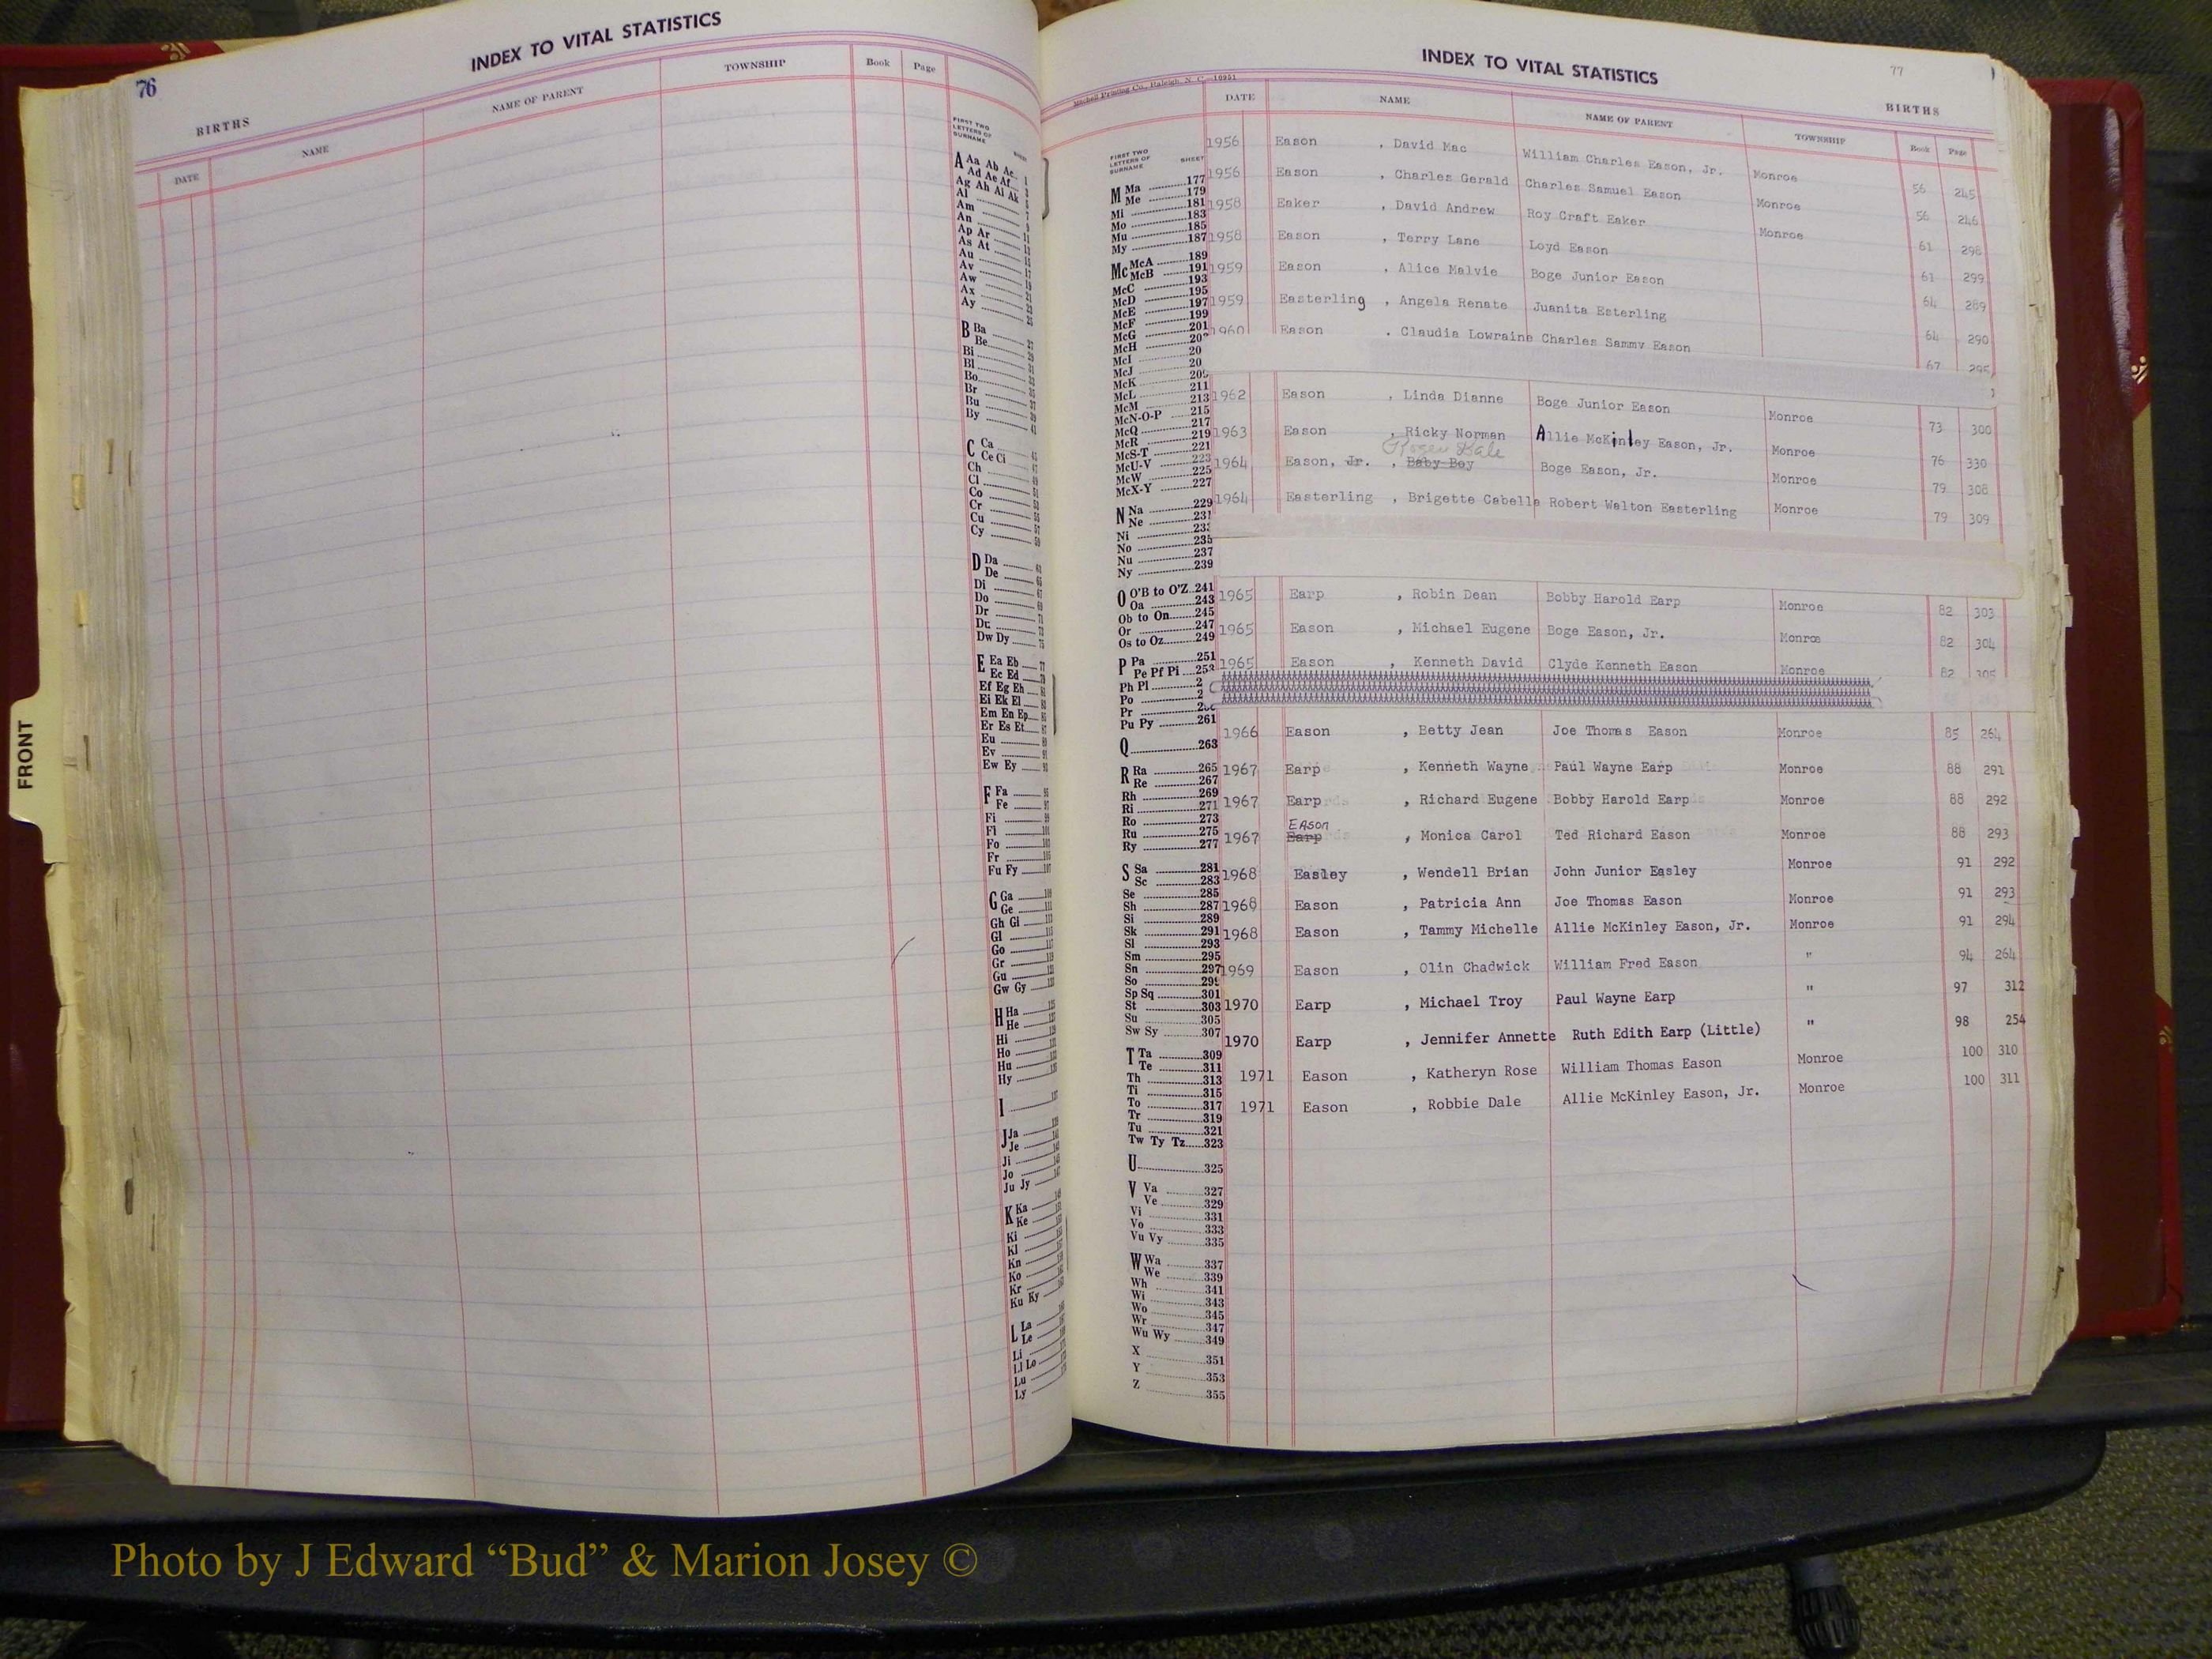 76
INDEX TO VITAL STATISTICS
BIRTHS
DATE NAME NAME OF PARENT TOWNSHIP Book Page
FIRST TWO
LETTERS OF
SURNAME SHEET
A Aa Ab Ac
Ad Ae Af
Ag Ah Ai Ak
Al
Am
An
Ap Ar
As At
Au
Av
Aw
Ax
Ay
B Ba
Be
Bi
Bl
Bo
Br
Bu
By
C Ca
Ce Ci
Ch
Cl
Co
Cr
Cu
Cy
D Da
De
Di
Do
Dr
Du
Dw Dy
E Ea Eb
Ec Ed
Ef Eg Eh
Ei Ek El
Em En Ep
Er Es Et
Eu
Ev
Ew Ey
F Fa
Fe
Fi
Fl
Fo
Fr
Fu Fy
G Ga
Ge
Gh Gi
Gl
Go
Gr
Gu
Gw Gy
H Ha
He
Hi
Ho
Hu
Hy
I
J Ja
Je
Ji
Jo
Ju Jy
K Ka
Ke
Ki
Kl
Kn
Ko
Kr
Ku Ky
L La
Le
Li
Ll Lo
Lu
Ly
FRONT
INDEX TO VITAL STATISTICS
77
BIRTHS
Mitchell Printing Co., Raleigh, N. C.—10951
DATE NAME NAME OF PARENT TOWNSHIP Book Page
FIRST TWO
LETTERS OF
SURNAME SHEET
M Ma 177
Me 179
Mi 181
Mo 183
Mu 185
My 187
Mc McA 189
McB 191
McC 193
McD 195
McE 197
McF 199
McG 201
McH 20
McI 20
McJ 20
McK 209
McL 211
McM 213
McN-O-P 215
McQ 217
McR 219
McS-T 221
McU-V 223
McW 225
McX-Y 227
N Na 229
Ne 231
Ni 233
No 235
Nu 237
Ny 239
O O'B to O'Z 241
Oa 243
Ob to On 245
Or 247
Os to Oz 249
P Pa 251
Pe Pf Pi 253
Ph Pl 2
Po 2
Pr
Pu Py 261
Q 263
R Ra 265
Re 267
Rh 269
Ri 271
Ro 273
Ru 275
Ry 277
S Sa 281
Sc 283
Se 285
Sh 287
Si 289
Sk 291
Sl 293
Sm 295
Sn 297
So 299
Sp Sq 301
St 303
Su 305
Sw Sy 307
T Ta 309
Te 311
Th 313
Ti 315
To 317
Tr 319
Tu 321
Tw Ty Tz 323
U 325
V Va 327
Ve 329
Vi 331
Vo 333
Vu Vy 335
W Wa 337
We 339
Wh 341
Wi 343
Wo 345
Wr 347
Wu Wy 349
X 351
Y 353
Z 355
1956 Eason , David Mac William Charles Eason, Jr. Monroe 56 245
1956 Eason , Charles Gerald Charles Samuel Eason Monroe 56 246
1958 Eaker , David Andrew Roy Craft Eaker Monroe 61 298
1958 Eason , Terry Lane Loyd Eason 61 299
1959 Eason , Alice Malvie Boge Junior Eason 64 289
1959 Easterling , Angela Renate Juanita Esterling 64 290
1960 Eason , Claudia Lowraine Charles Sammy Eason 67 295
1962 Eason , Linda Dianne Boge Junior Eason Monroe 73 300
1963 Eason , Ricky Norman Allie McKinley Eason, Jr. Monroe 76 330
Roger Dale
1964 Eason, Jr. , Baby Boy Boge Eason, Jr. Monroe 79 308
1964 Easterling , Brigette Cabelle Robert Walton Easterling Monroe 79 309
1965 Earp , Robin Dean Bobby Harold Earp Monroe 82 303
1965 Eason , Michael Eugene Boge Eason, Jr. Monroe 82 304
1965 Eason , Kenneth David Clyde Kenneth Eason Monroe 82 305
1966 Eason , Betty Jean Joe Thomas Eason Monroe 85 264
1967 Earp , Kenneth Wayne Paul Wayne Earp Monroe 88 291
1967 Earp , Richard Eugene Bobby Harold Earp Monroe 88 292
EAson
1967 Earp , Monica Carol Ted Richard Eason Monroe 88 293
1968 Easley , Wendell Brian John Junior Easley Monroe 91 292
1968 Eason , Patricia Ann Joe Thomas Eason Monroe 91 293
1968 Eason , Tammy Michelle Allie McKinley Eason, Jr. Monroe 91 294
1969 Eason , Olin Chadwick William Fred Eason " 94 264
1970 Earp , Michael Troy Paul Wayne Earp " 97 312
1970 Earp , Jennifer Annette Ruth Edith Earp (Little) " 98 254
1971 Eason , Katheryn Rose William Thomas Eason Monroe 100 310
1971 Eason , Robbie Dale Allie McKinley Eason, Jr. Monroe 100 311
Photo by J Edward “Bud” & Marion Josey ©